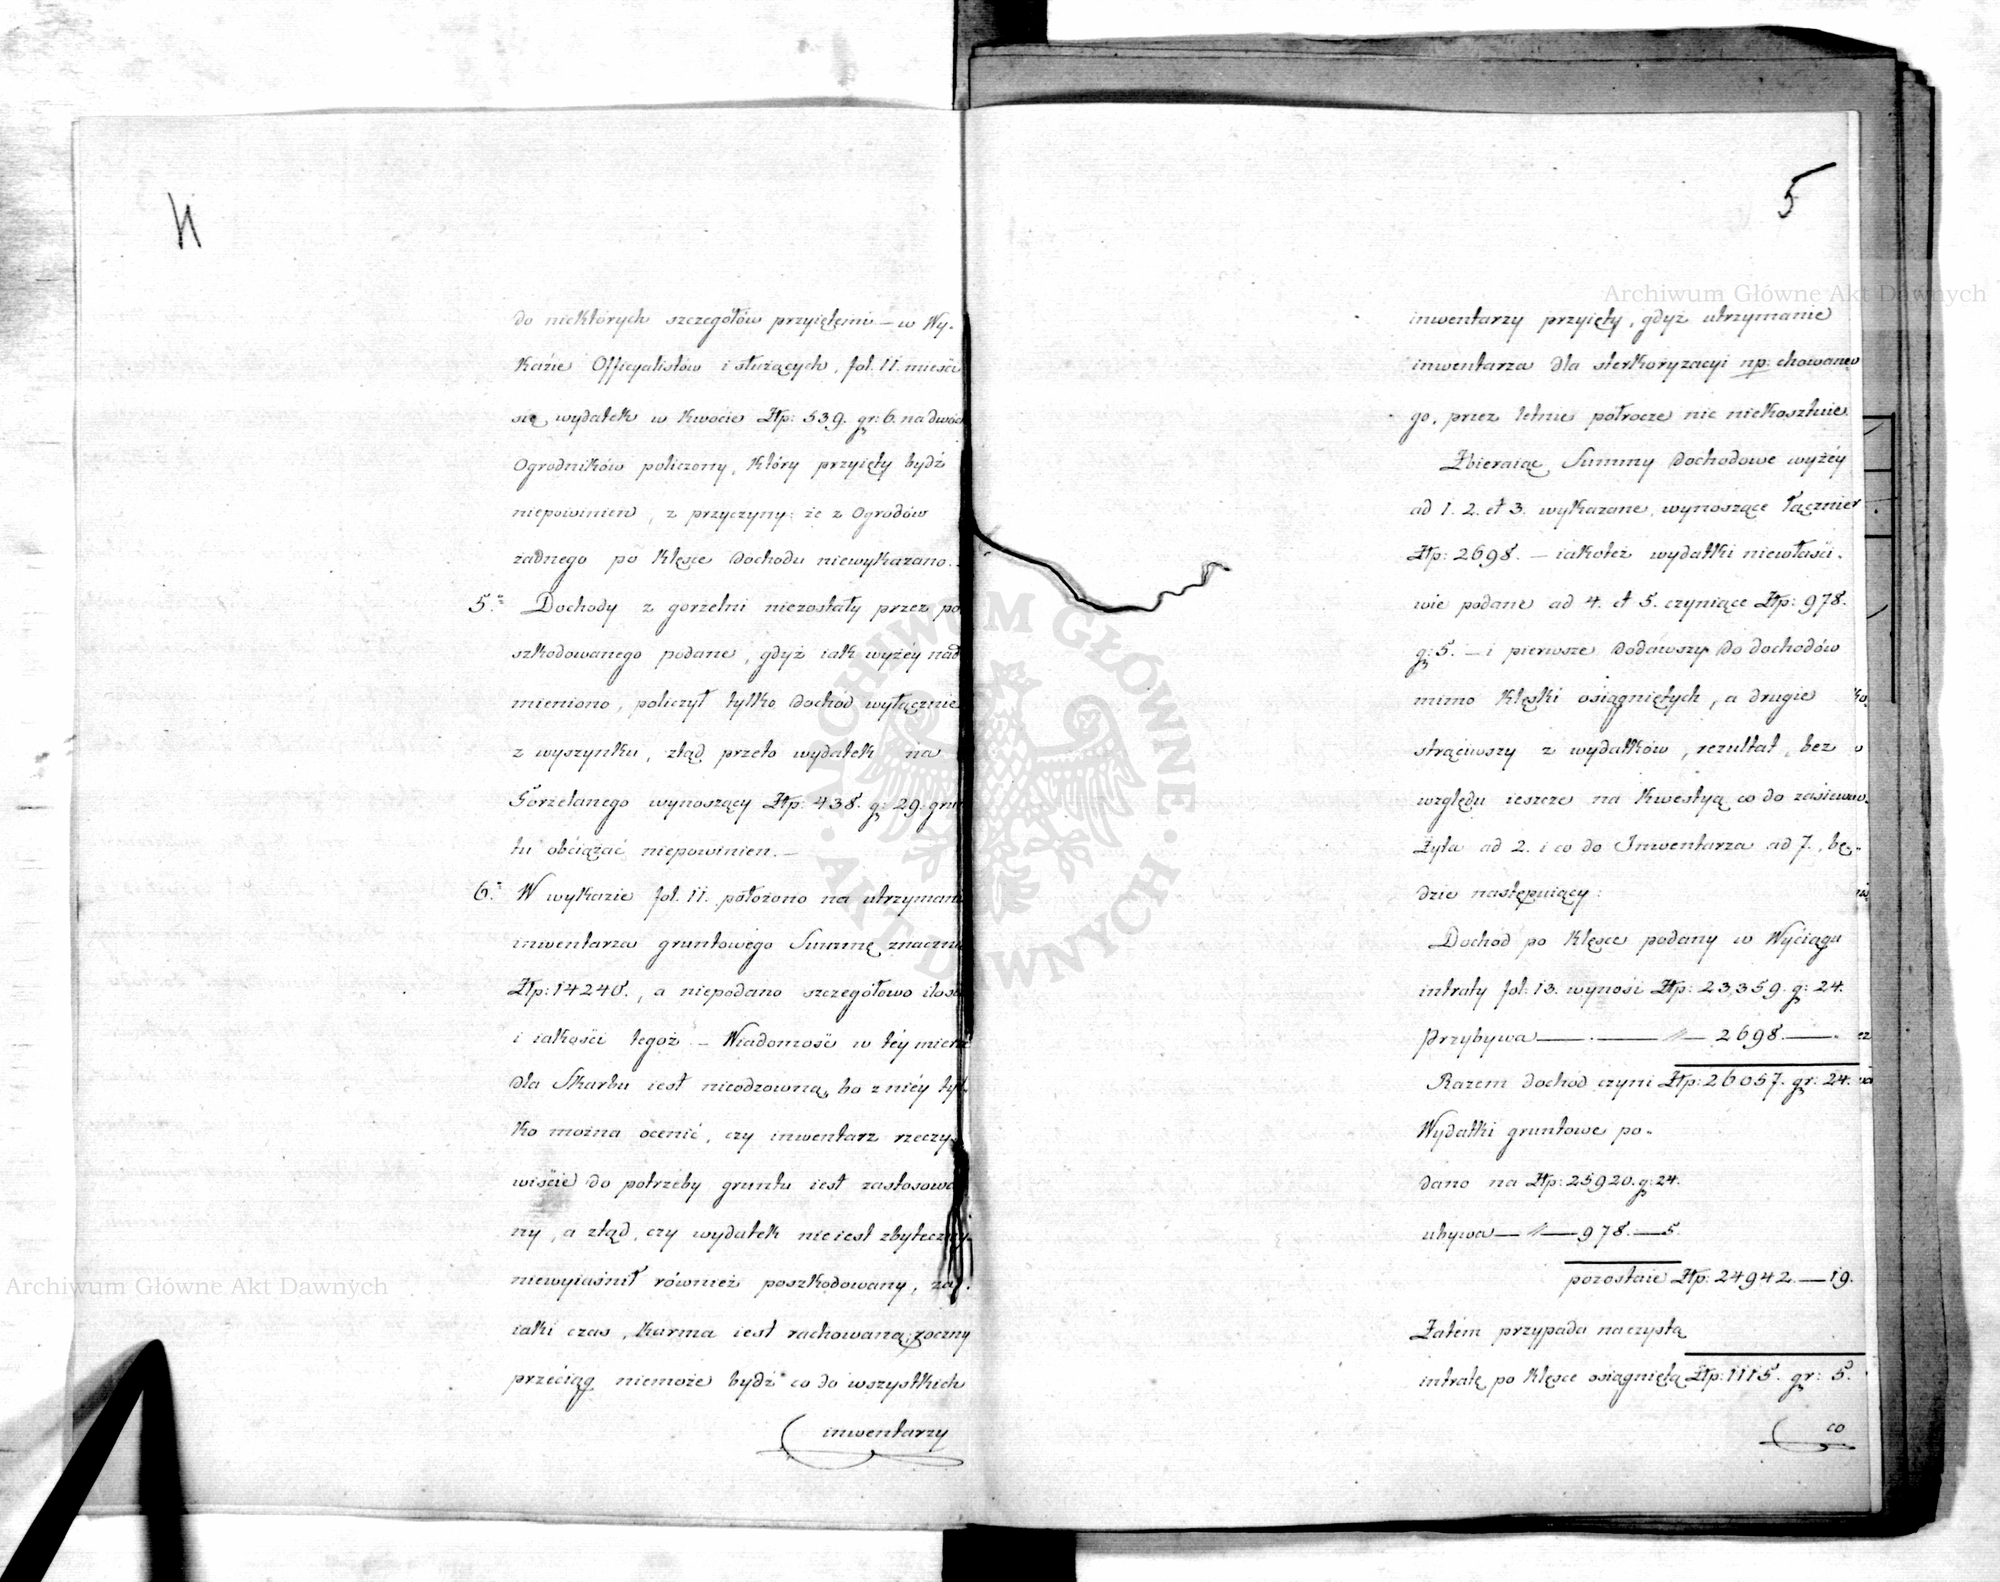 4
do niektórych szczegółów przyiętemi — w Wy-
kazie Officyalistów i służących, fol. 11. mieści
się wydatek w kwocie Złp: 539. gr: 6. na dwóch
Ogrodników policzony, który przyięty bydź
niepowinien, z przyczyny: że z Ogrodów
żadnego po klęsce dochodu niewykazano.
5. Dochody z gorzelni niezostały przez po
szkodowanego podane, gdyż iak wyżéy nad
mieniono, policzył tylko dochód wyłącznie
z wyszynku, ztąd przeto wydatek na
Gorzelanego wynoszący Złp: 438. g: 29. grun
tu obciążać niepowinien. —
6. W wykazie fol. 11. położono na utrzymani
inwentarza gruntowego Summę znaczną
Złp: 14240., a niepodano szczegółowo ilość
i iakości tegoż — Wiadomość w téy mierze
dla Skarbu iest nieodzowną, bo z niéy tyl-
ko można ocenić, czy inwentarz rzeczy-
wiście do potrzeby gruntu iest zastosowa
ny, a ztąd, czy wydatek nie iest zbyteczny,
niewyiaśnił również poszkodowany, za
iaki czas, karma iest rachowaną; roczny
przeciąg niemoże bydź co do wszystkich
inwentarzy
5
inwentarzy przyięty, gdyż utrzymanie
inwentarza dla sterkoryzacyi np: chowane
go, przez letnie półrocze nic niekosztuie.
Zbieraiąc Summy dochodowe wyżéy
ad 1. 2. et 3. wykazane, wynoszące łącznie
Złp: 2698. — iakoteż wydatki niewłaści-
wie podane ad 4. et 5. czyniące Złp: 978.
g: 5. — i pierwsze dodawszy do dochodów
mimo klęski osiągniętych, a drugie
strąciwszy z wydatków, rezultat, bez
względu ieszcze na kwestyą co do zasiewu
żyta ad 2. i co do Inwentarza ad 7., bę-
dzie następuiący:
Dochód po klęsce podany w Wyciągu
intraty fol: 13. wynosi Złp: 23,359. g: 24.
Przybywa — . — 〃 — 2698. — .
Razem dochód czyni Złp: 26057. gr: 24.
Wydatki gruntowe po-
dano na Złp: 25920. g: 24.
ubywa — 〃 — 978. — 5.
pozostaie Złp: 24942. — 19.
Zatém przypada na czystą
intratę po klęsce osiągniętą Złp: 1115. gr: 5.
co
Archiwum Główne Akt Dawnych
Archiwum Główne Akt Dawnych
ARCHIWUM GŁÓWNE · AKT DAWNYCH ·